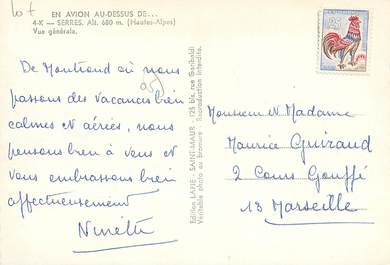 lot
EN AVION AU-DESSUS DE...
4-K — SERRES. Alt. 680 m. (Hautes-Alpes)
Vue générale.
05
De Montrond où nous
passons des vacances bien
calmes et aérées, nous
pensons bien à vous et
vous embrassons bien
affectueusement
Ninette
Edition LAPIE - SAINT-MAUR - 125 bis, rue Garibaldi
Véritable photo au bromure - Reproduction interdite.
0,25
Monsieur et Madame
Maurice Guiraud
2 Cours Gouffé
13 Marseille